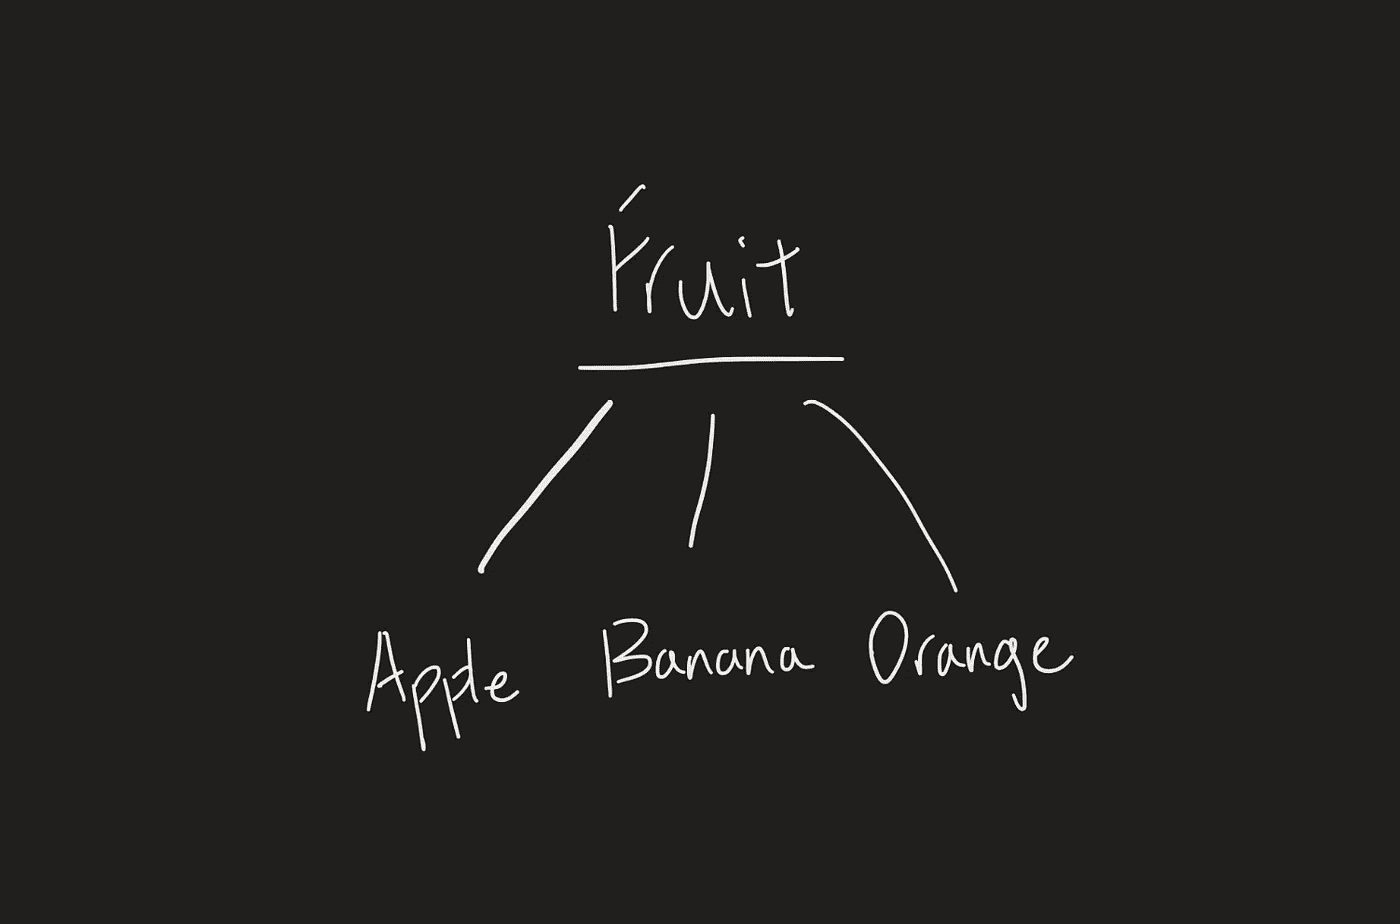 Fruit
Apple Banana Orange